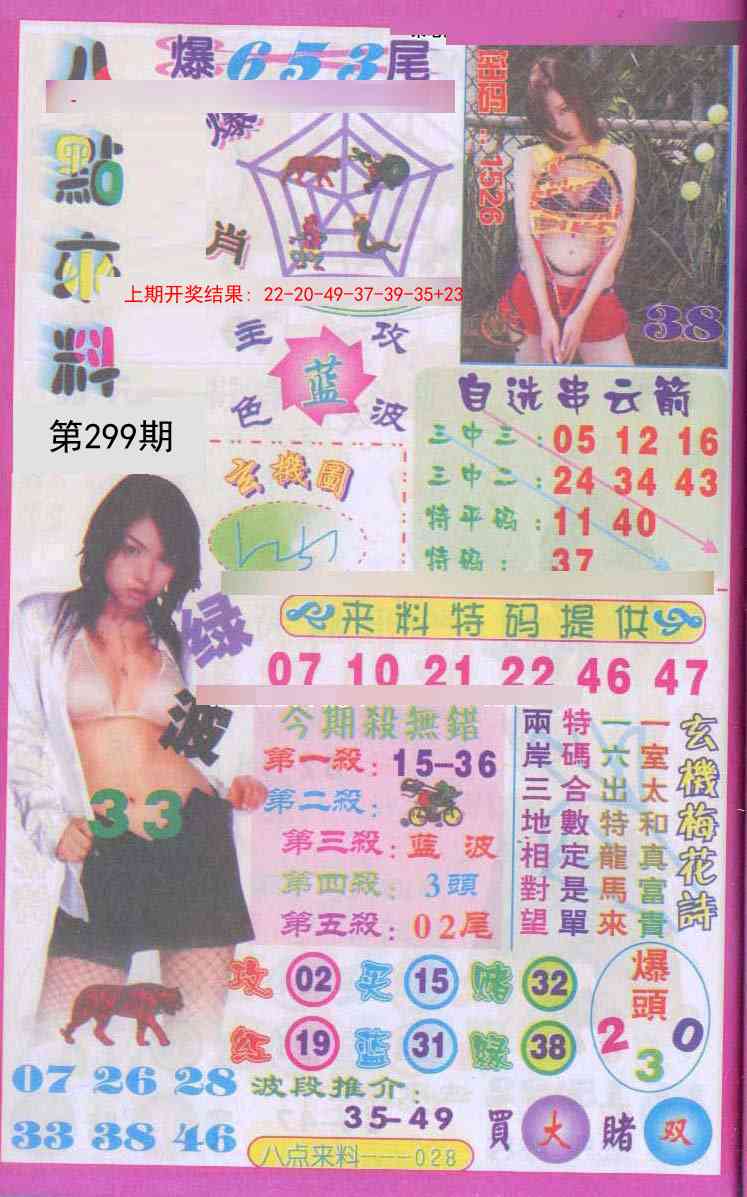 爆653尾
八點來料
爆肖
図码：1526
38
上期开奖结果：22-20-49-37-39-35+23
主攻
蓝
色波
第299期
自选串云箭
三中三：05 12 16
三中二：24 34 43
特平码：11 40
特码：37
玄機圖
绿波
33
来料特码提供
07 10 21 22 46 47
今期殺無錯
第一殺：15-36
第二殺：
第三殺：蓝波
第四殺：3頭
第五殺：02尾
玄機梅花詩
一室太和真富貴
一六出特龍馬來
特碼合數定是單
兩岸三地相對望
攻 02 买 15 赌 32
红 19 蓝 31 绿 38
爆頭
2 3 0
07 26 28
33 38 46
波段推介：
35-49
買大賭双
八点来料---028